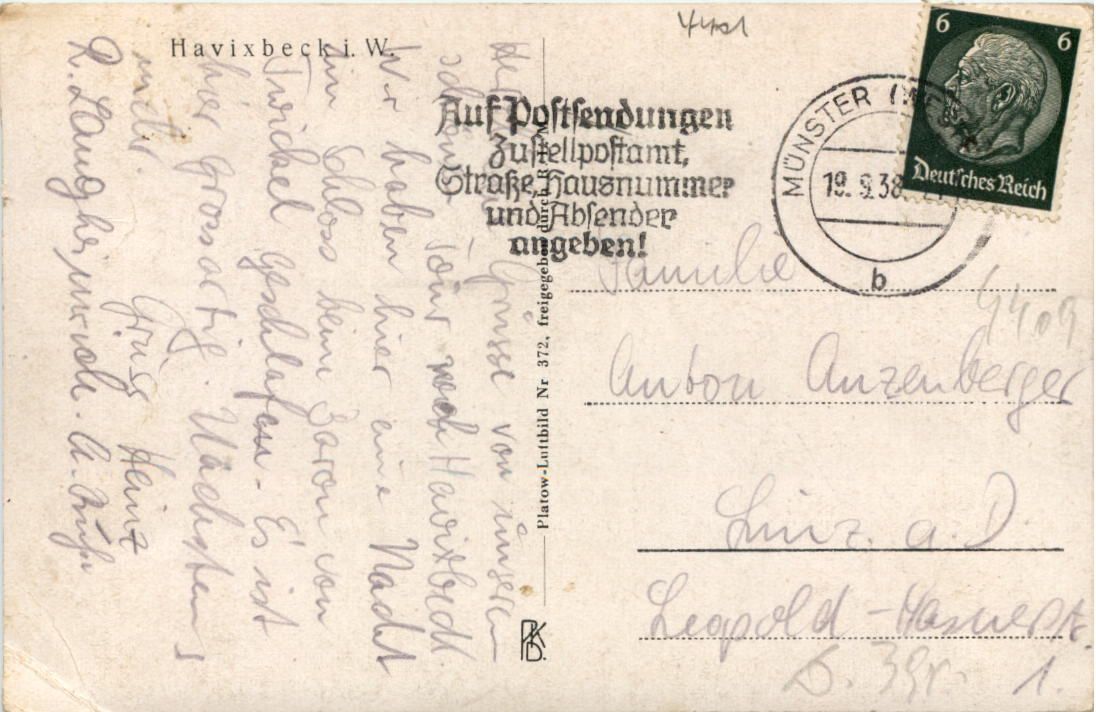 Havixbeck i. W.
Grüsse von unserer
Tour nach Havixbeck
Wir haben hier eine Nacht
im Schloss beim Baron von
Twickel geschlafen. Es ist
hier grossartig. Nächstens
mehr. Gruss Heinz
Platow-Luftbild Nr 372, freigegeben durch R.L.M.
PKD.
4401
Auf Postsendungen
Zustellpostamt,
Straße, Hausnummer
und Absender
angeben!
MÜNSTER (WESTF)
19.9.38
b
6 6
Deutsches Reich
Familie
Anton Anzenberger
Linz. a. D.
Leopold-
1.